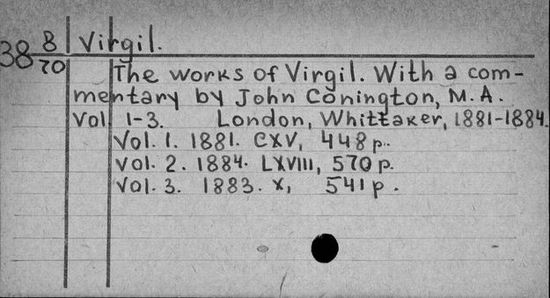 38 8/70 Virgil.
The works of Virgil. With a com-
mentary by John Conington, M.A.
Vol. 1-3. London, Whittaker, 1881-1884.
Vol. 1. 1881. CXV, 448 p.
Vol. 2. 1884. LXVIII, 570 p.
Vol. 3. 1883. X, 541 p.